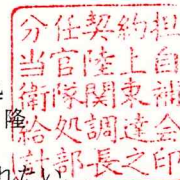 分任契約担
当官陸上自
衛隊関東補
給処調達会
計部長之印
隆
れたい